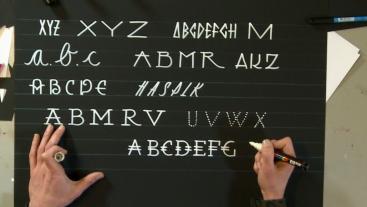 XYZ XYZ ABCDEFGH M
a.b.c ABMR AKZ
ABCDE HASDLK
ABMRV UVWX
ABCDEFG